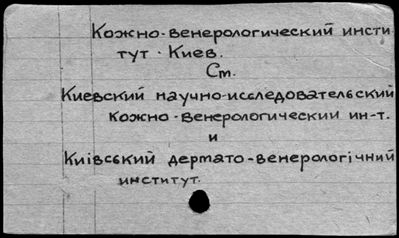 Кожно-венерологический инсти
тут · Киев.
См.
Киевский научно-исследовательский
кожно-венерологический ин-т.
и
Київський дермато-венерологічний
институт.